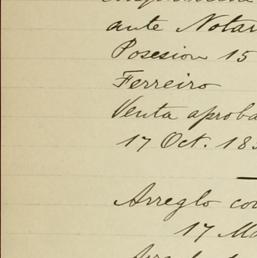 ante Notar
Posesion 15
Ferreiro
Venta aproba
17 Oct. 18
Arreglo co
17 Ma